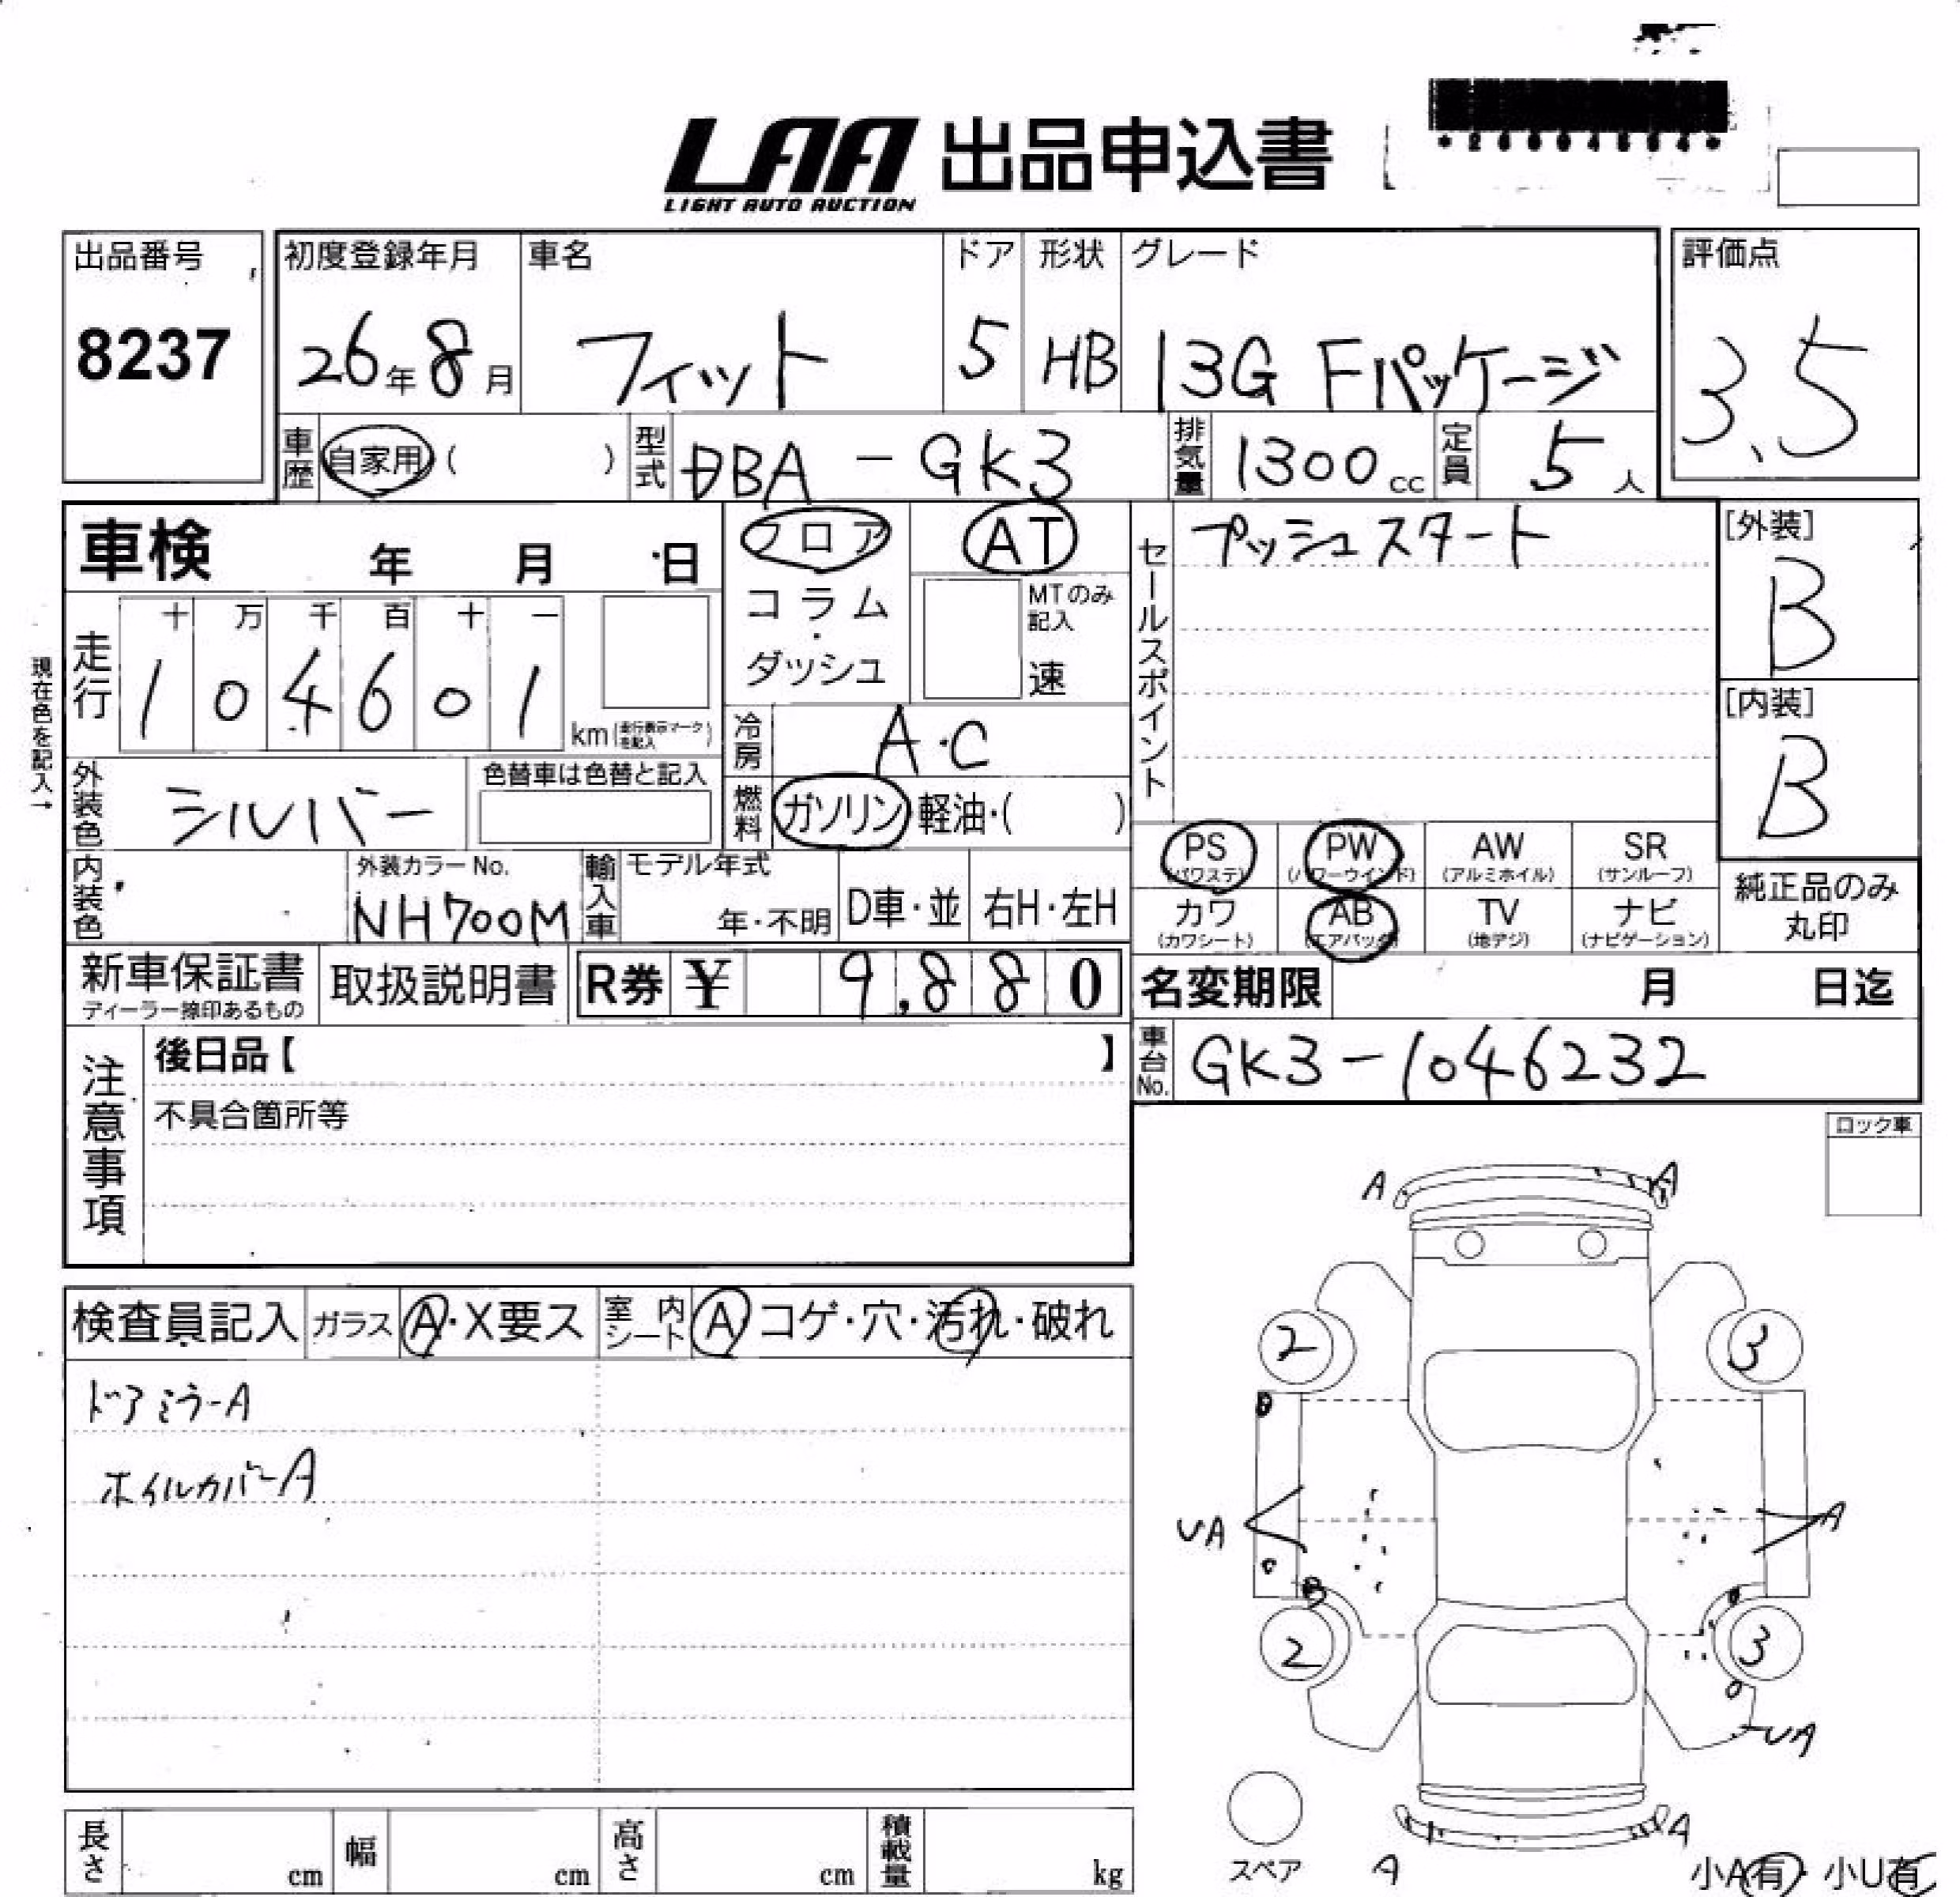 LAA 出品申込書
LIGHT AUTO AUCTION
出品番号
8237
初度登録年月
26年8月
車名
フィット
ドア
5
形状
HB
グレード
13G Fパッケージ
評価点
3.5
車歴 自家用 ( )
型式 DBA - GK3
排気量 1300 cc
定員 5 人
車検 年 月 日
フロア
コラム・ダッシュ
AT
MTのみ記入
速
セールスポイント
プッシュスタート
[外装]
B
[内装]
B
現在色を記入→
走行
十 万 千 百 十 一
1 0 4 6 0 1
km (走行表示マークを記入)
冷房 A・C
外装色 シルバー
色替車は色替と記入
燃料 ガソリン・軽油・( )
内装色
外装カラーNo.
NH700M
輸入車
モデル年式
年・不明
D車・並
右H・左H
PS (パワステ)
PW (パワーウインド)
AW (アルミホイル)
SR (サンルーフ)
カワ (カワシート)
AB (エアバック)
TV (地デジ)
ナビ (ナビゲーション)
純正品のみ丸印
新車保証書
ディーラー捺印あるもの
取扱説明書
R券 ¥ 9,880
名変期限 月 日迄
車台No. GK3-1046232
注意事項
後日品【 】
不具合箇所等
ロック車
検査員記入
ガラス A・X要ス
室内シート A コゲ・穴・汚れ・破れ
ドアミラーA
ホイルカバーA
A A
2 3
UA A
B
2 3
UA
A
A
スペア
小A有・小U有
長さ cm
幅 cm
高さ cm
積載量 kg